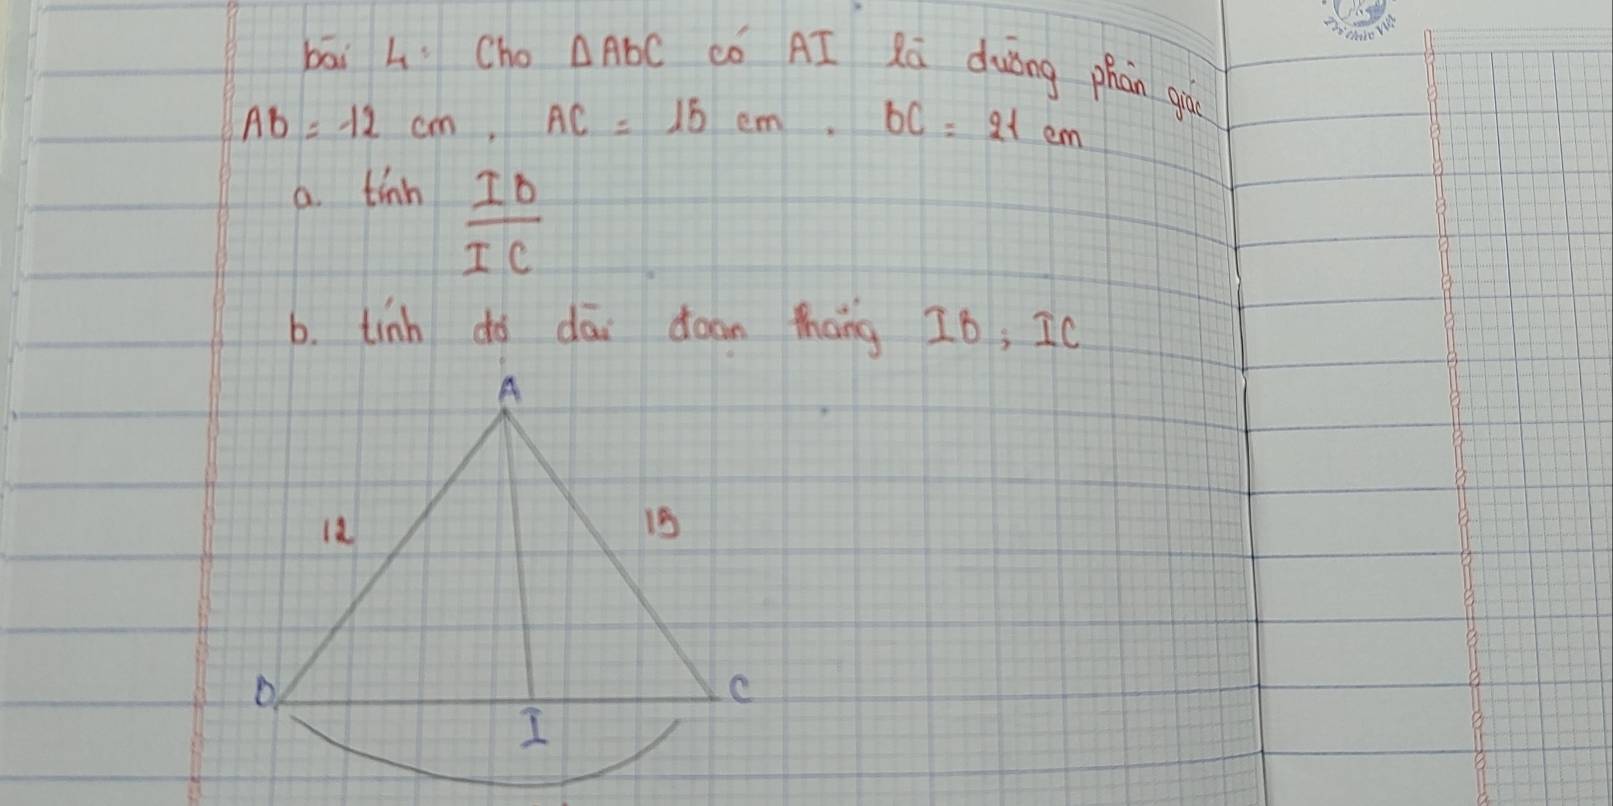 bài 4: Cho ΔABC có AI là đường phân giác
AB = 12 cm, AC = 15 cm. BC = 21 cm
a. tính IB/IC
b. tính độ dài đoạn thẳng IB; IC
A
12
15
B
C
I
Tri thức Việt